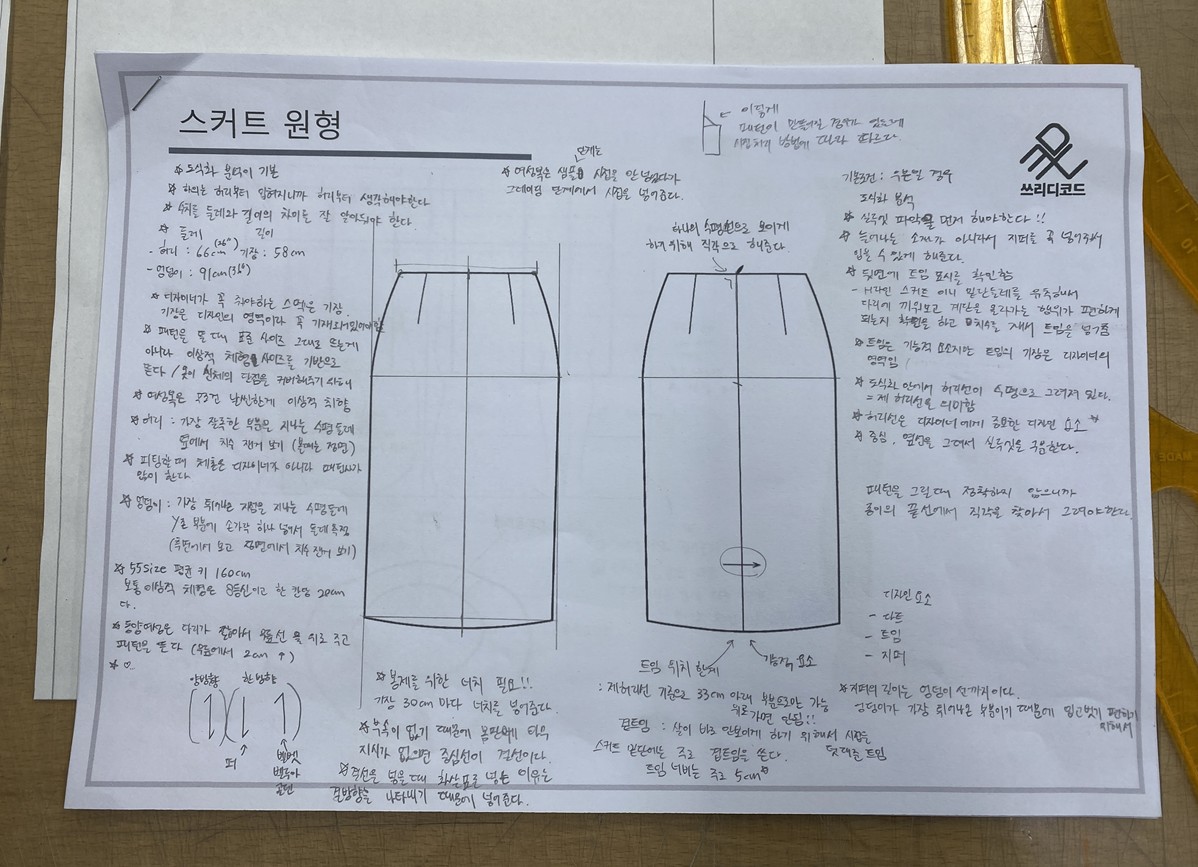 스커트 원형
쓰리디코드
이렇게
패턴이 만들어질 경우가 있는데
시접처리 방법에 따라 다르다.
☆ 도식화 분석이 기본
☆ 하의는 허리부터 입혀지니까 허리부터 생각해야한다
☆ 치수를 둘레와 길이의 차이를 잘 알아둬야 한다.
☆ 둘레 길이
- 허리 : 66cm (26") 기장 : 58cm
- 엉덩이 : 91cm (36")
☆ 디자이너가 꼭 줘야하는 스펙은 기장.
기장은 디자인의 영역이라 꼭 기재되어있어야함
☆ 패턴을 뜰 때 표준 사이즈 그대로 뜨는게
아니라 이상적 체형 사이즈를 기반으로
뜬다 / 옷이 신체의 단점을 커버해주기 위해
☆ 여성복은 무조건 날씬한게 이상적 취향
☆ 허리 : 가장 잘록한 부분을 지나는 수평 둘레
옆에서 치수 잰거 보기 (볼때는 정면)
☆ 피팅할 때 제품은 디자이너가 아니라 패턴사가
많이 한다.
☆ 엉덩이 : 가장 튀어나온 지점을 지나는 수평둘레
Y존 부분에 손가락 하나 넣어서 둘레 측정
(측면에서 보고 정면에서 치수 잰거 보기)
☆ 55size 평균 키 160cm
보통 이상적 체형은 8등신이고 한 칸당 20cm
다.
☆ 동양여성은 다리가 짧아서 무릎선을 위로 주고
패턴을 뜬다 (무릎에서 2cm ↑)
양방향 한방향
퍼
벨벳
벨루아
골덴
☆ 여성복은 샘플 단계는 시접을 안 넣었다가
그레이딩 단계에서 시접을 넣어준다.
하나의 수평선으로 보이게
하기 위해 직각으로 해준다.
기본조건 : 우븐일 경우
도식화 분석
☆ 실루엣 파악을 먼저 해야한다 !!
☆ 늘어나는 소재가 아니라서 지퍼를 꼭 넣어줘서
입을 수 있게 해준다.
☆ 뒷면에 트임 표시를 확인함
- H라인 스커트 이니 밑단둘레를 유추해서
다리에 끼워보고 계단을 올라가는 행위가 편하게
되는지 확인을 하고 치수를 재서 트임을 넣어줌
☆ 트임은 기능적 요소지만 트임의 기장은 디자이너의
영역임
☆ 도식화 안에서 허리선이 수평으로 그려져 있다.
= 제 허리선을 의미함
☆ 허리선은 디자이너에게 중요한 디자인 요소☆
☆ 중심, 옆선을 그려서 실루엣을 구음한다.
패턴을 그릴때 정확하지 않으니까
종이의 끝선에서 직각을 찾아서 그려야한다.
디자인 요소
- 다트
- 트임
- 지퍼
☆ 봉제를 위한 너치 필요!!
가장 30cm 마다 너치를 넣어준다.
☆ 부속이 없기 때문에 몸판에
지시가 없으면 중심선이 결선이다.
☆ 결선을 넣을때 화살표로 넣는 이유는
결방향을 나타내기 때문에 넣어준다.
트임 위치 한계 기능적 요소
: 제허리선 기준으로 33cm 아래 부분으로만 가능
위로가면 안됨!!
겹트임 : 살이 바로 안보이게 하기 위해서 시접을
덧대준 트임
스커트 밑단에는 주로 겹트임을 쓴다.
트임 너비는 주로 5cm☆
☆ 지퍼의 길이는 엉덩이 선까지이다.
엉덩이가 가장 튀어나온 부분이기 때문에 입고벗기 편하기
위해서